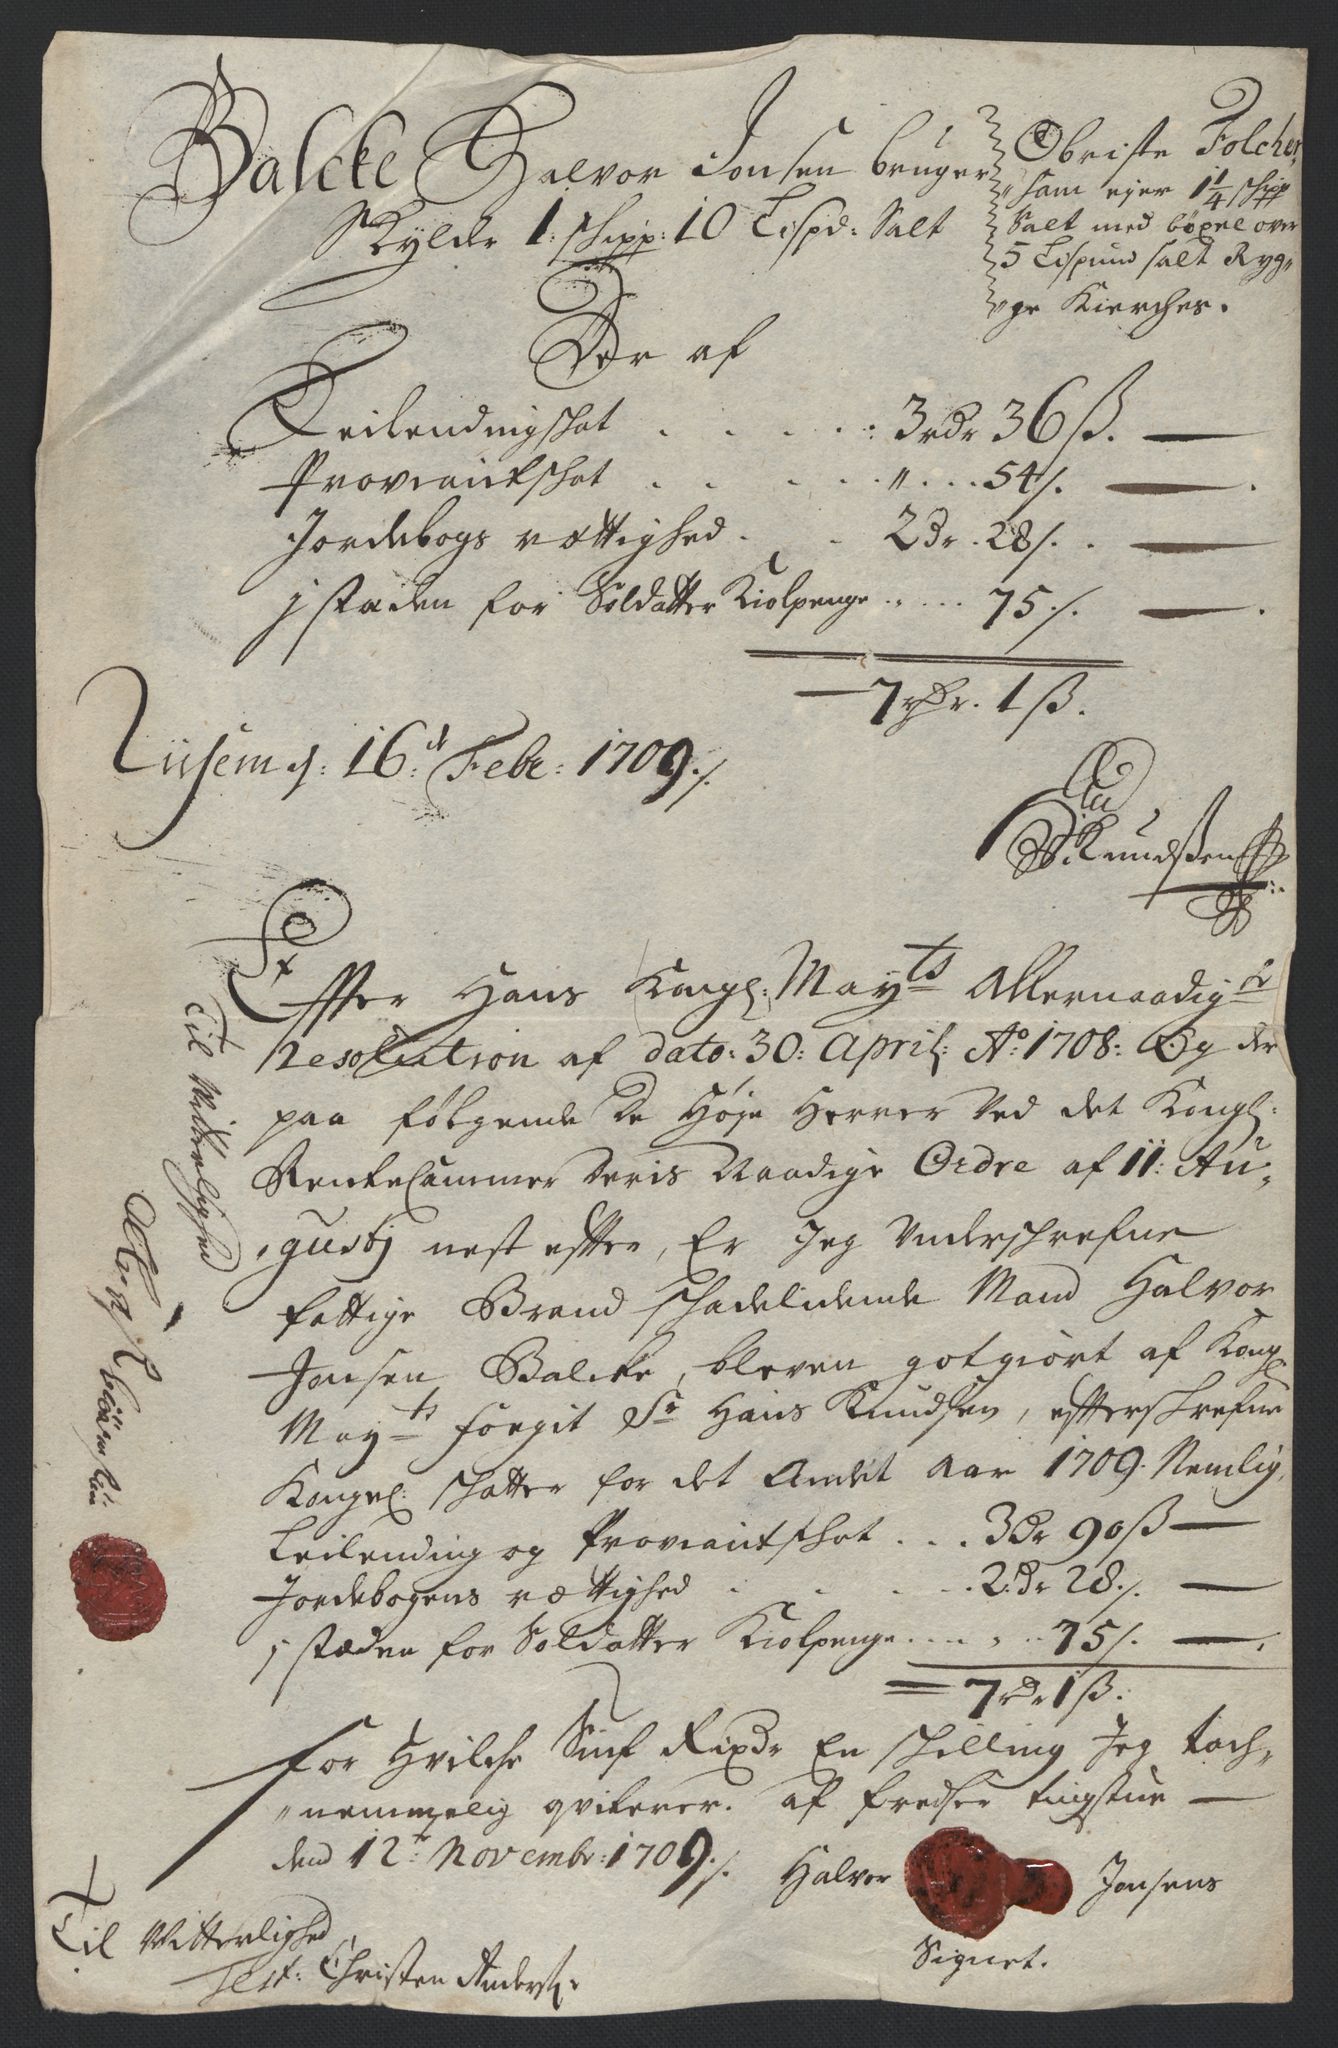 Balcke Halvor Jonsen bruger
Skylder 1: schipp: 10 Lispd: Salt
Obriste Folcher,,
,,sam ejer 1 1/4 schpp
Salt med böxel over
5 Lispund salt Ryg,,
,,ge Kierches.
Der af
Leilendingschat . . . . : 3rdr 36 ß.
Proviantschat . . . . . ,, . . . 54 /.
Jordebogs rettighed . . 2 Dr . 28 /. .
j staden for Soldatter Kiolpenge . . . . . 75 ./.
7 rdr. 1 ß.
d: 16: Febr: 1709 ./.
Knudßen
Effter Hans Kongl: Mayts Allernaadigste
Resolution af dato: 30: April: Ao 1708: Og der
paa følgende De Høje Herrer Ved det Kongl:
RenteCammer Deris Naadige Ordre af 11: Au,,
,,gustj nest effter, Er Jeg Underschrefne
fattige Brand schadelidende Mand Halvor
Jonsen Balcke, bleven gotgiort af Kongl
Mayts fogit Sr Hans Knudsen, effterschrefne
Kongel: schatter for det Andet Aar 1709. Nemlig,
Leilending og Proviantschat . . . 3 Dr 90 ß
Jordebogens rettighed . . . . . 2. Dr 28. /.
j stæden for Soldatter Kiolpenge . . . . . . 75 /.
7 rdr 1 ß.
For Hvilche Siuf Rixdr En schilling Jeg tach,,
,,nemmelig qviterer. af fredsee tingstue
dend 12te Novembr: 1709 ./.
Halvor Jonsens
Signet.
Til Vitterlighed
Test: Christen Anders:
Til Vitterlighed